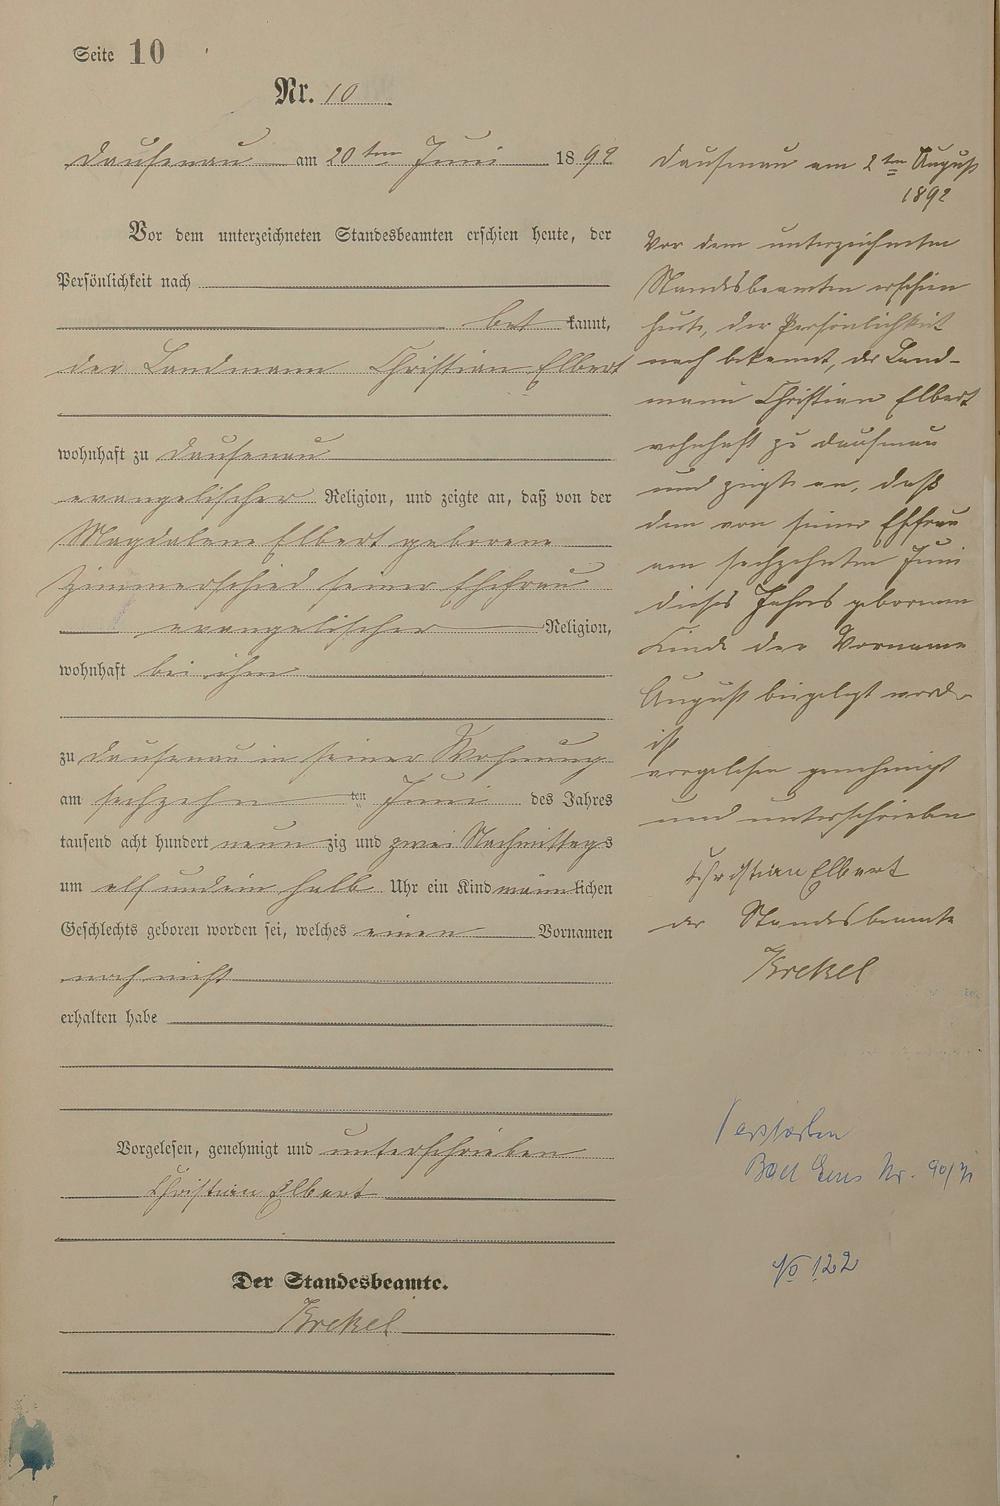 Seite 10
Nr. 10
Dausenau am 20ten Juni 1892
Vor dem unterzeichneten Standesbeamten erschien heute, der
Persönlichkeit nach
bekannt,
der Landmann Christian Elbert
wohnhaft zu Dausenau
evangelischer Religion, und zeigte an, daß von der
Magdalene Elbert geborene
Zimmerschied seiner Ehefrau
evangelischer Religion,
wohnhaft bei ihm
zu Dausenau in seiner Wohnung
am sechzehn ten Juni des Jahres
tausend acht hundert neun zig und zwei Nachmittags
um elf und ein halb Uhr ein Kind männlichen
Geschlechts geboren worden sei, welches einen Vornamen
noch nicht
erhalten habe
Vorgelesen, genehmigt und unterschrieben
Christian Elbert
Der Standesbeamte.
Krekel
Dausenau am 2ten August
1892
Vor dem unterzeichneten
Standesbeamten erschien
heute, der Persönlichkeit
nach bekannt, der Land-
mann Christian Elbert
wohnhaft zu Dausenau
und zeigte an, daß
dem von seiner Ehefrau
am sechzehnten Juni
dieses Jahres geborenen
Kinde der Vorname
August beigelegt worden
ist
vorgelesen genehmigt
und unterschrieben
Christian Elbert
der Standesbeamte
Krekel
Verstorben
Bad Ems Nr. 90/71
No 122